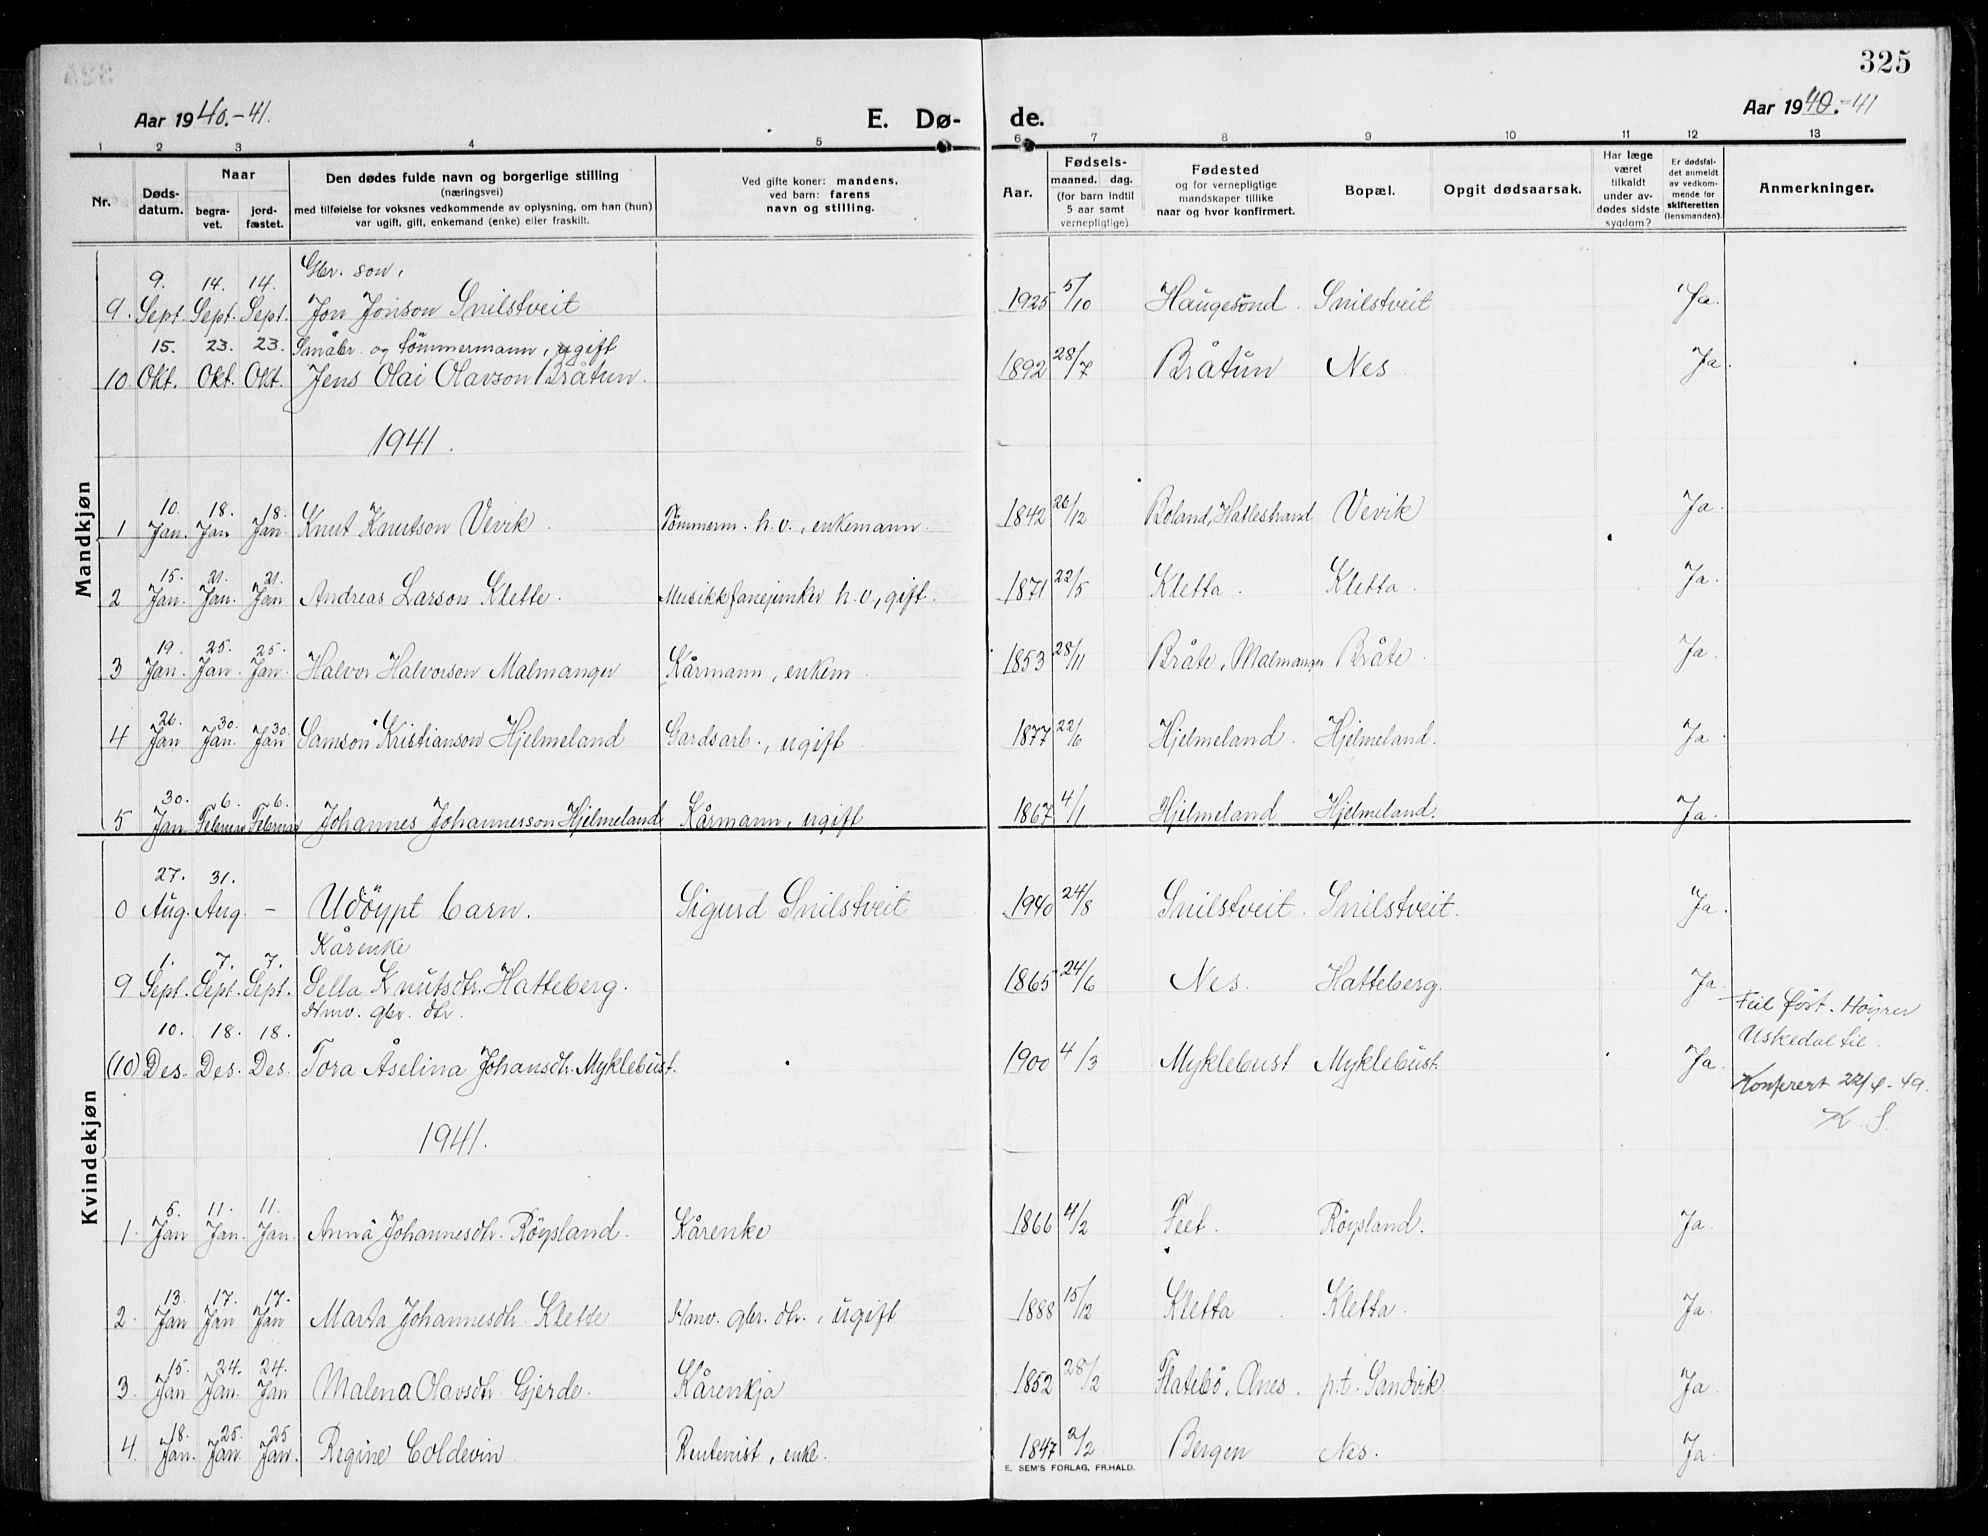 325
Aar 1940.-41.
E. Dø-
de.
Aar 1940.-41
1 2 3 4 5 6 7 8 9 10 11 12 13
Nr.
Døds-datum.
Naar
begra-vet.
jord-fæstet.
Den dødes fulde navn og borgerlige stilling
(næringsvei)
med tilføielse for voksnes vedkommende av oplysning, om han (hun)
var ugift, gift, enkemand (enke) eller fraskilt.
Ved gifte koner: mandens,
ved barn: farens
navn og stilling.
Aar.
Fødsels-
maaned. dag.
(for barn indtil
5 aar samt
vernepligtige)
Fødested
og for vernepligtige
mandskaper tillike
naar og hvor konfirmert.
Bopæl.
Opgit dødsaarsak.
Har læge
været
tilkaldt
under av-
dødes sidste
sygdom?
Er dødsfal-
det anmeldt
av vedkom-
mende for
skifteretten
(lensmanden).
Anmerkninger.
Mandkjøn
Gbr. son,
9. 9. Sept. 14. Sept. 14. Sept. Jon Jonson Snilstveit 1925 5/10 Haugesund Snilstveit Ja.
Småbr. og tömmermann, ugift
10 15. Okt. 23. Okt. 23. Okt. Jens Olai Olavson Bråtun. 1892 28/7 Bråtun Nes Ja.
1941.
1 10. Jan. 18. Jan. 18. Jan. Knut Knutson Vevik. Tömmerm. h.v., enkemann 1842 26/12 Boland, Hatlestrand Vevik Ja.
2 15. Jan. 21. Jan. 21. Jan Andreas Larson Klette. Musikkfanejunker h.v., gift. 1871 22/5 Kletta. Kletta. Ja.
3 19. Jan. 25. Jan. 25. Jan. Halvor Halvorson Malmanger Kårmann, enkem. 1853 28/11 Bråte, Malmanger Bråte. Ja.
4 26. Jan 30. Jan. 30. Jan Samson Kristianson Hjelmeland Gardsarb., ugift 1877 22/6 Hjelmeland. Hjelmeland. Ja.
5 30. Jan 6. Februar 6. Februar Johannes Johannesson Hjelmeland Kårmann, ugift 1867 4/11 Hjelmeland Hjelmeland. Ja.
Kvindekjøn
0 27. Aug. 31. Aug. - Udöypt barn. Sigurd Snilstveit 1940 24/8 Snilstveit. Snilstveit. Ja.
Kårenke
9 1. Sept. 7. Sept. 7. Sept. Sella Knutsdtr. Hatteberg. 1865 24/6 Nes. Hatteberg. Ja
Hmv. gbr. dtr.
(10) 10. Des. 18. Des. 18. Des. Tora Åselina Johansdtr. Myklebust. 1900 4/3 Myklebust Myklebust. Ja.
Feil ført. Høyrer
Uskedal til.
Konferert 22/4-49.
K. S.
1941.
1. 5. Jan 11. Jan. 11. Jan. Anna Johannesdtr. Röysland. Kårenke 1866 4/2 Feet. Röysland. Ja.
2. 13. Jan 17. Jan 17. Jan Marta Johannesdtr. Klette Hmv. gbr. dtr., ugift 1888 15/12 Kletta Kletta. Ja.
3. 15. Jan 24. Jan. 24. Jan Malena Olavsdtr. Gjerde. Kårenkja 1852 28/2 Flatebö, Ænes. p.t. Sandvik. Ja.
4. 18. Jan. 25. Jan. 25 Jan. Regine Coldevin Rentenist, enke. 1847 2/2 Bergen Nes. Ja.
E. SEM'S FORLAG, FR.HALD.